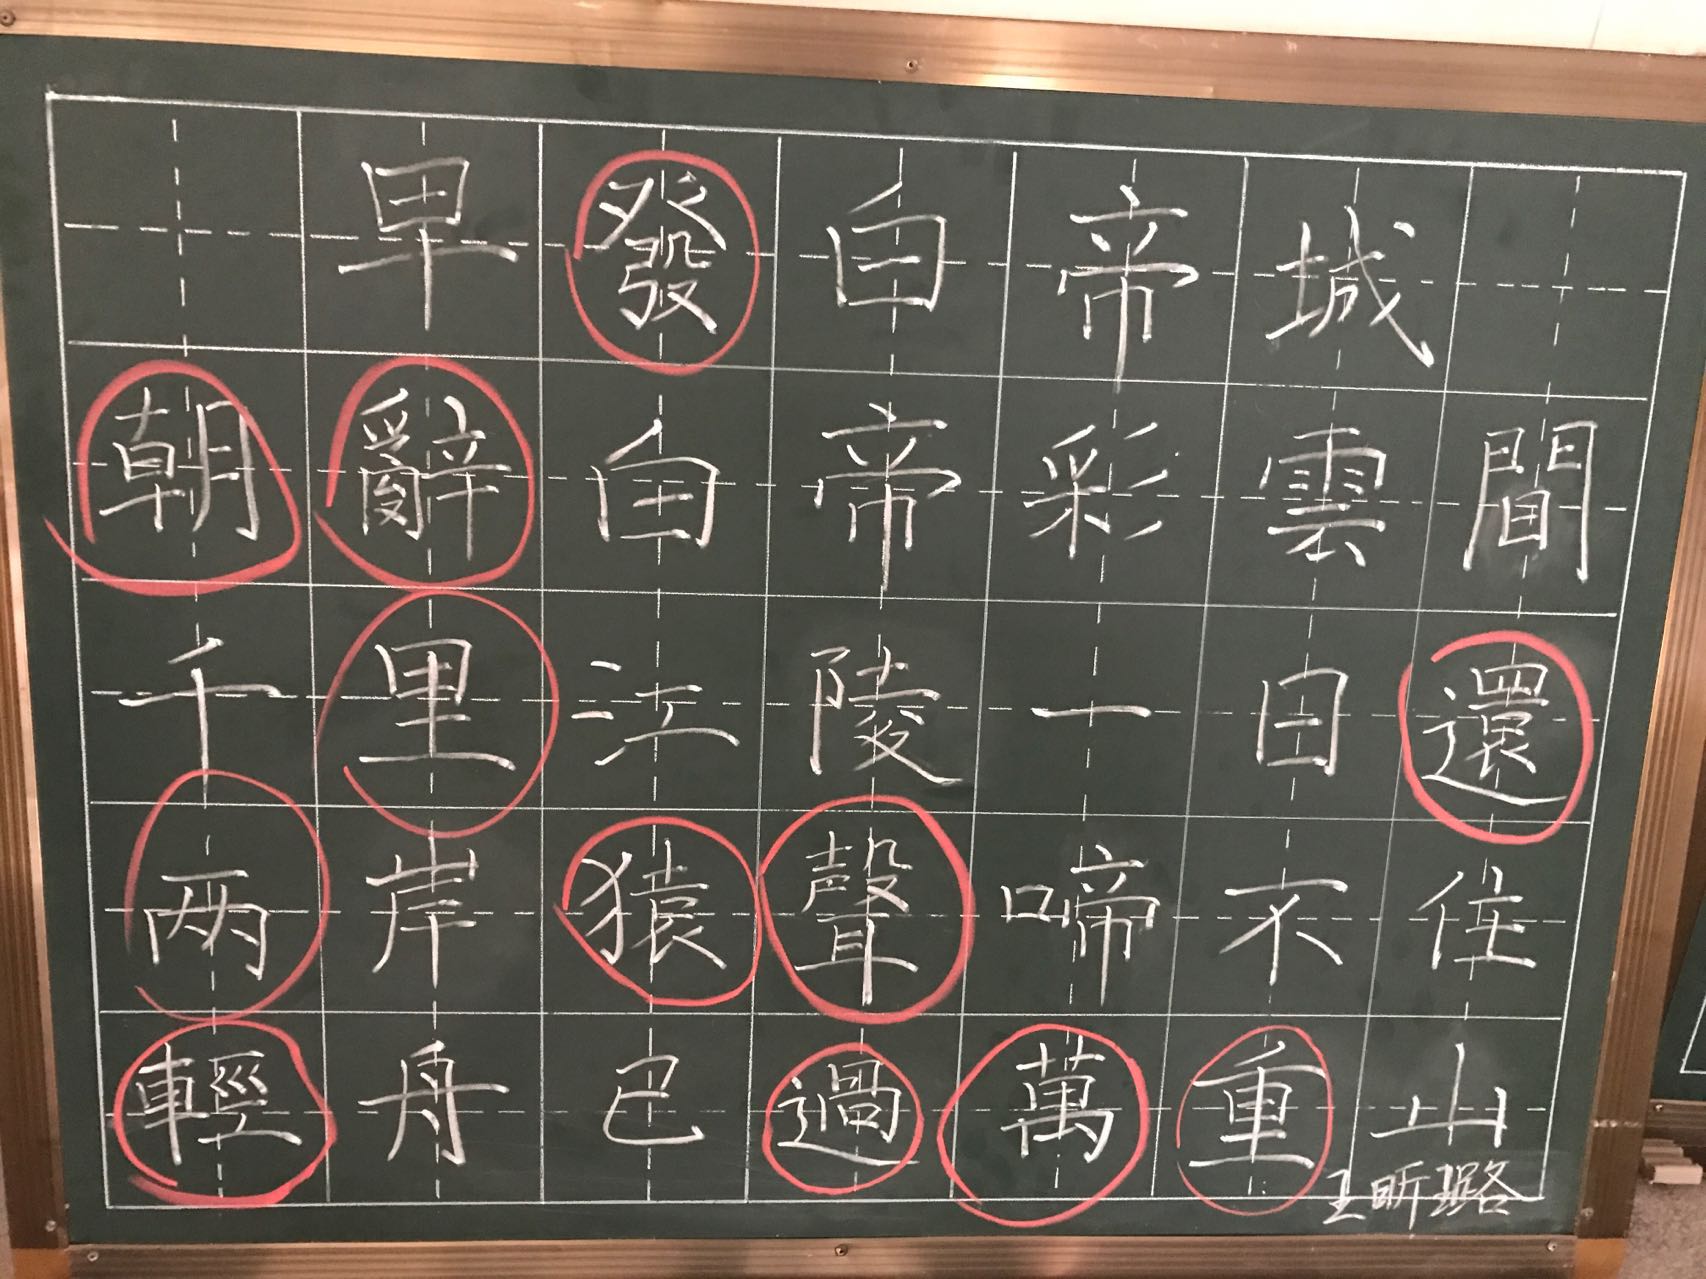 早發白帝城
朝辭白帝彩雲間
千里江陵一日還
兩岸猿聲啼不住
輕舟已過萬重山
王昕璐